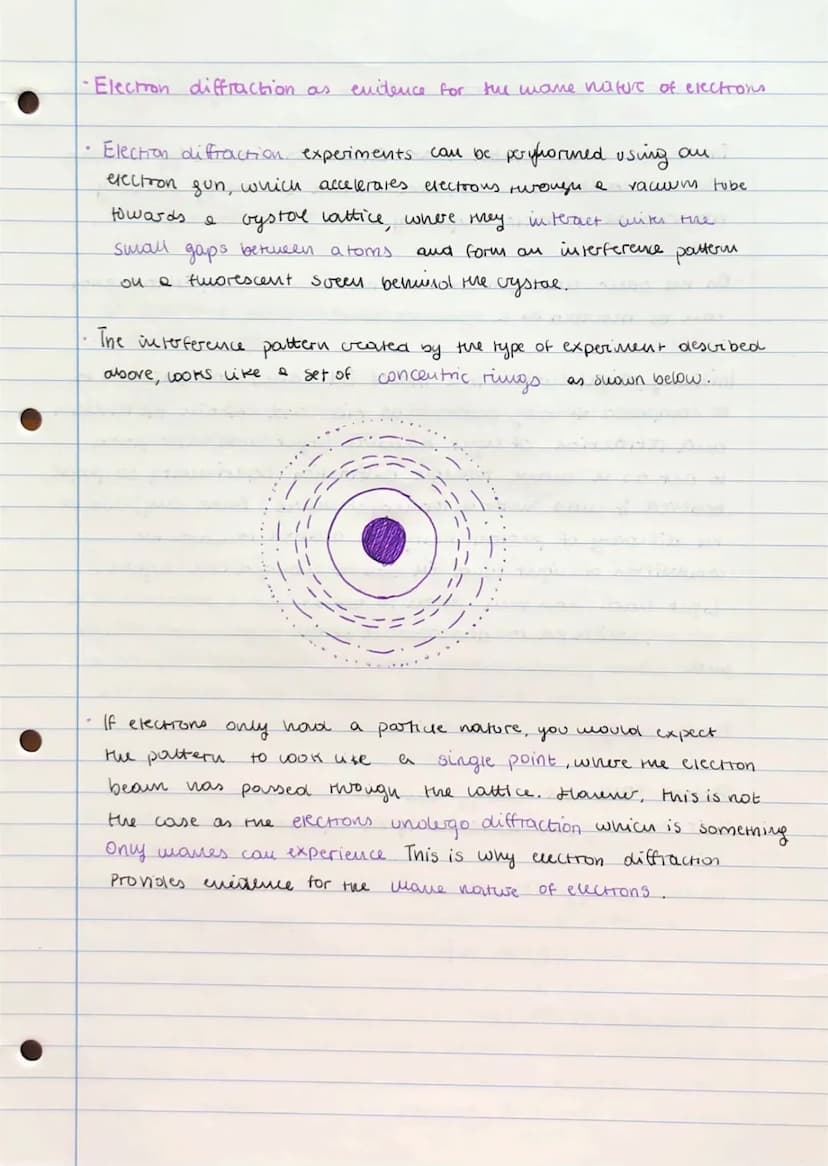 · Electron diffraction as evidence for the wave nature of electrons
· Electron diffraction experiments can be performed using an
electron gun, which accelerates electrons through a vacuum tube
towards a crystal lattice, where they interact with the
small gaps between atoms and form an interference pattern
on a fluorescent screen behind the crystal.
· The interference pattern created by the type of experiment described
above, looks like a set of concentric rings as shown below.
· If electrons only had a particle nature, you would expect
the pattern to look like a single point, where the electron
beam has passed through the lattice. However, this is not
the case as the electrons undergo diffraction which is something
Only waves can experience This is why electron diffraction
Provides evidence for the wave nature of electrons.